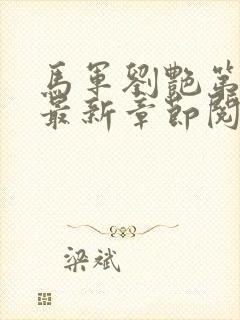 馬軍劉艷第
最新章節閱
梁斌